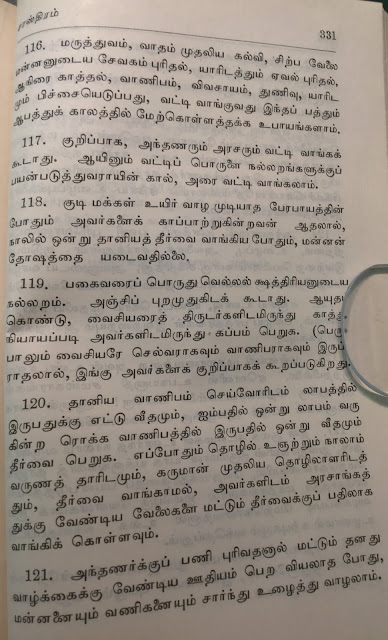 சாஸ்திரம்
331
116. மருத்துவம், வாதம் முதலிய கல்வி, சிற்ப வேலை
மன்னனுடைய சேவகம் புரிதல், யாரிடத்தும் ஏவல் புரிதல்,
ஆகிரை காத்தல், வாணிபம், விவசாயம், துணிவு, யாரிட
மும் பிச்சையெடுப்பது, வட்டி வாங்குவது இந்தப் பத்தும்
ஆபத்துக் காலத்தில் மேற்கொள்ளத்தக்க உபாயங்களாம்.
117. குறிப்பாக, அந்தணரும் அரசரும் வட்டி வாங்கக்
கூடாது. ஆயினும் வட்டிப் பொருளை நல்லறங்களுக்குப்
பயன்படுத்துவராயின் கால், அரை வட்டி வாங்கலாம்.
118. குடி மக்கள் உயிர் வாழ முடியாத பேரபாயத்தின்
போதும் அவர்களைக் காப்பாற்றுகின்றவன் ஆதலால்,
நாலில் ஒன்று தானியத் தீர்வை வாங்கிய போதும், மன்னன்
தோஷத்தை யடைவதில்லை.
119. பகைவரைப் பொருது வெல்லல் க்ஷத்திரியனுடைய
நல்லறம். அஞ்சிப் புறமுதுகிடக் கூடாது. ஆயுத
கொண்டு, வைசியரைத் திருடர்களிடமிருந்து காத்து
நியாயப்படி அவர்களிடமிருந்து கப்பம் பெறுக. (பெரு
பாலும் வைசியரே செல்வராகவும் வாணிபராகவும் இருப்
ராதலால், இங்கு அவர்களைக் குறிப்பாகக் கூறப்படுகிறது.
120. தானிய வாணிபம் செய்வோரிடம் லாபத்தில்
இருபதுக்கு எட்டு வீதமும், ஐம்பதில் ஒன்று லாபம் வரு
கின்ற ரொக்க வாணிபத்தில் இருபதில் ஒன்று வீதமும்
தீர்வை பெறுக. எப்போதும் தொழில் உஞற்றும் நாலாம்
வருணத் தாரிடமும், கருமான் முதலிய தொழிலாளரிடத்
தும், தீர்வை வாங்காமல், அவர்களிடம் அரசாங்கத்
துக்கு வேண்டிய வேலைகளை மட்டும் தீர்வைக்குப் பதிலாக
வாங்கிக் கொள்ளவும்.
121. அந்தணர்க்குப் பணி புரிவதனால் மட்டும் தனது
வாழ்க்கைக்கு வேண்டிய ஊதியம் பெற வியலாத போது,
மன்னனையும் வணிகனையும் சார்ந்து உழைத்து வாழலாம்.